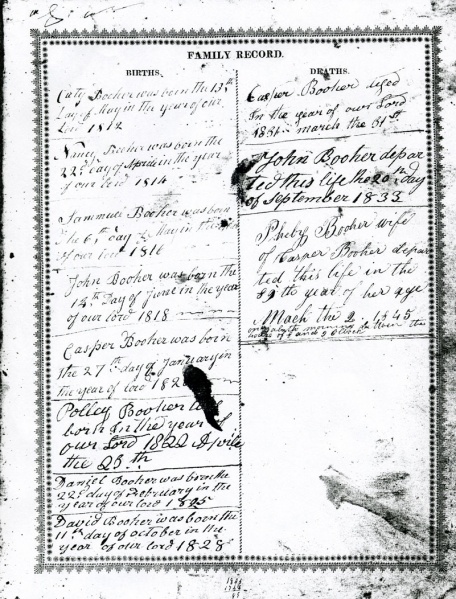 FAMILY RECORD.
BIRTHS.
Caty Booher was born the 13th
Day of May in the year of our
Lord 1812
Nancy Booher was born the
22d day of Aprile in the year
of our lord 1814
Sammuel Booher was born
The 6th day of May in the
of our lord 1816
John Booher was born the
14th Day of June in the year
of our lord 1818
Casper Booher was born
the 27th day of January in
the year of lord 182
Polley Booher
born In the year of
our Lord 1822 Aprile
the 25th
Daniel Booher was born the
22d day of February in the
year of our lord 1825
David Booher was born the
11th day of october in the
year of our lord 1828
DEATHS.
Casper Booher
In the year of our Lord
march the 31st
John Booher depar
ted this life the 20th day
of September 1833
Pheby Booher wife
of Casper Booher depar
ted this life in the
89th year of her age
March the 2 1845